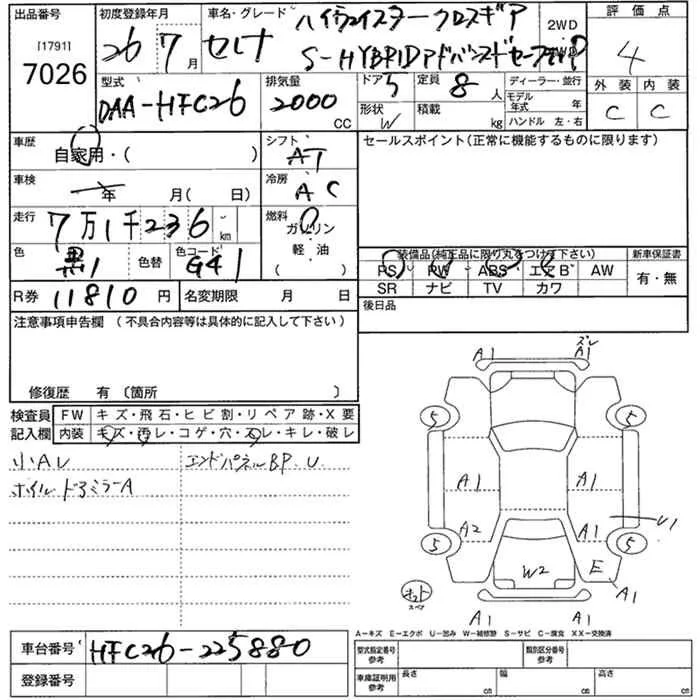 出品番号
[1791]
7026
初度登録年月
26 7月
車名・グレード
セレナ
ハイウェイスター クロスギア
S-HYBRIDアドバンスドセーフティP
2WD
評価点
4
外装 内装
C C
型式
DAA-HFC26
排気量
2000
CC
ドア 5
形状 W
定員 8人
積載 kg
ディーラー・並行
モデル年式 年
ハンドル 左・右
車歴
自家用・( )
シフト
AT
セールスポイント(正常に機能するものに限ります)
車検
年 月(日)
冷房
AC
走行
7万1千236km
燃料
ガソリン
軽油
色
黒
色替
色コード
G41
装備品(純正品に限り丸をつけ下さい)
PS PW ABS エアB AW
SR ナビ TV カワ
新車保証書
有・無
R券 11810円
名変期限 月 日
後日品
注意事項申告欄 (不具合内容等は具体的に記入して下さい)
修復歴 有 〔箇所 〕
検査員記入欄
FW キズ・飛石・ヒビ割・リペア跡・X要
内装 キズ・汚レ・コゲ・穴・スレ・キレ・破レ
小AU
エンドパネルBP.U
ホイルドアミラーA
A1 ズレ A1
5 5
A1 A1
A2 A1 U1
5 5
W2 E A1
スペア
A1 A1
A-キズ E-エクボ U-凹み W-補修跡 S-サビ C-腐食 XX-交換済
車台番号 HFC26-225880
登録番号
型式指定番号 参考
類別区分番号 参考
車庫証明用 参考
長さ cm
幅 cm
高さ cm